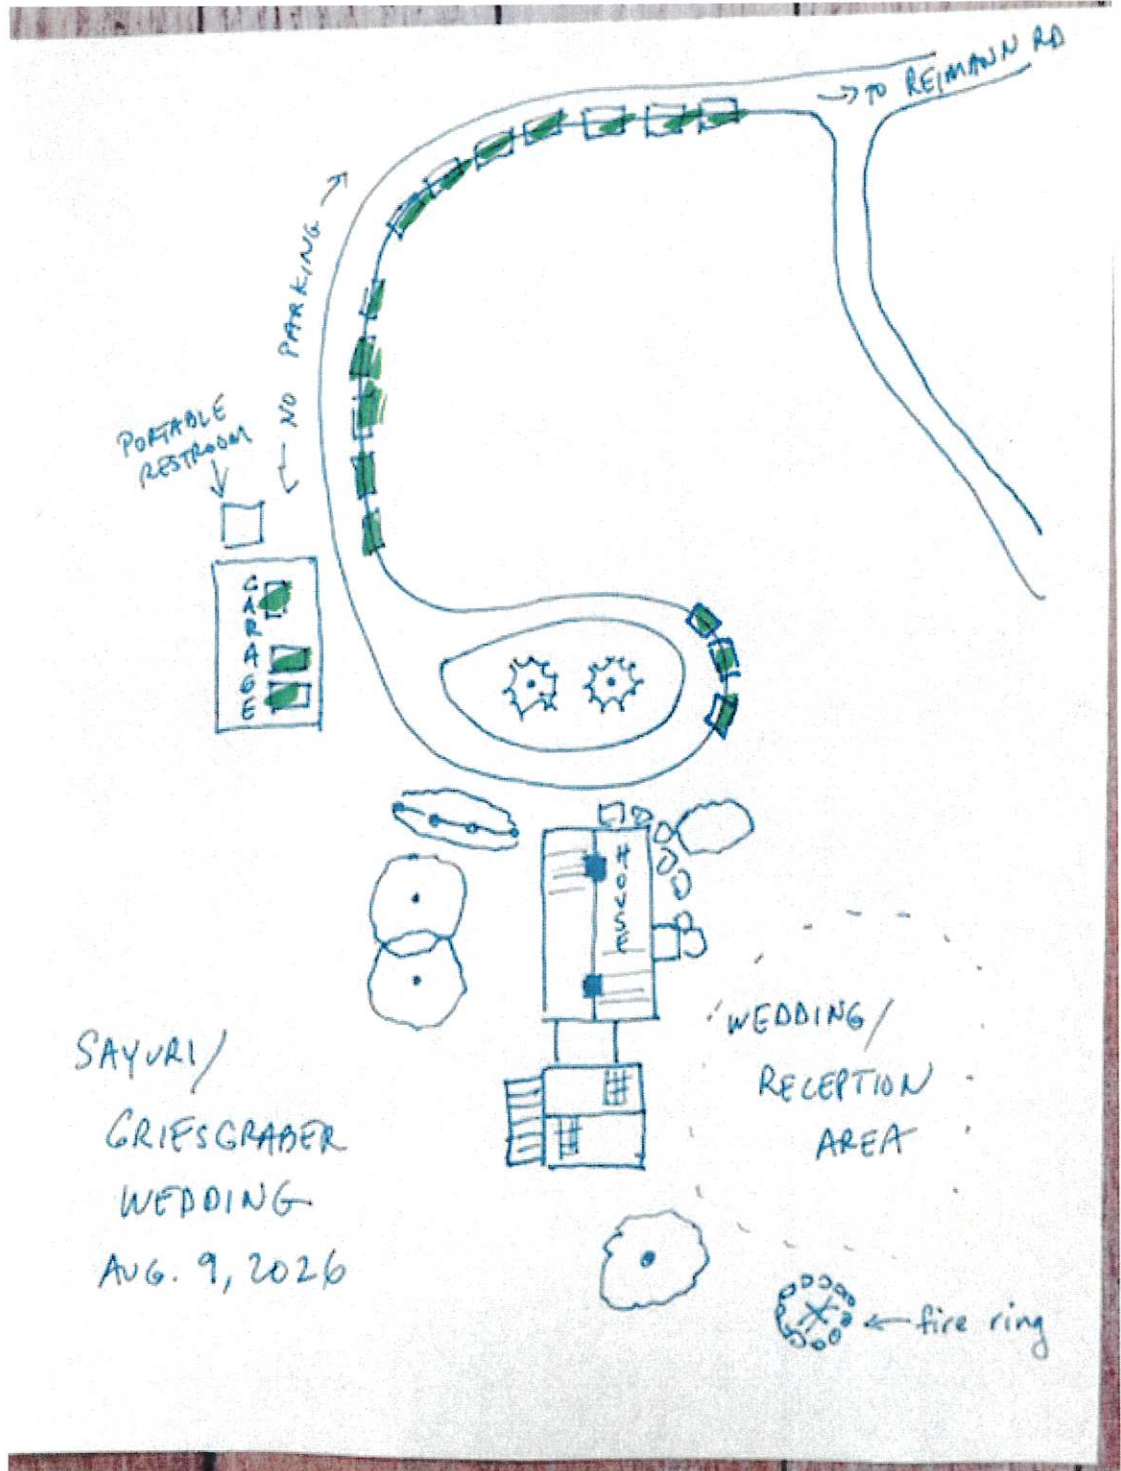 → TO REIMANN RD
← NO PARKING →
PORTABLE
RESTROOM
GARAGE
HOUSE
WEDDING/
RECEPTION
AREA
SAYURI/
GRIESGRABER
WEDDING
AUG. 9, 2026
← fire ring